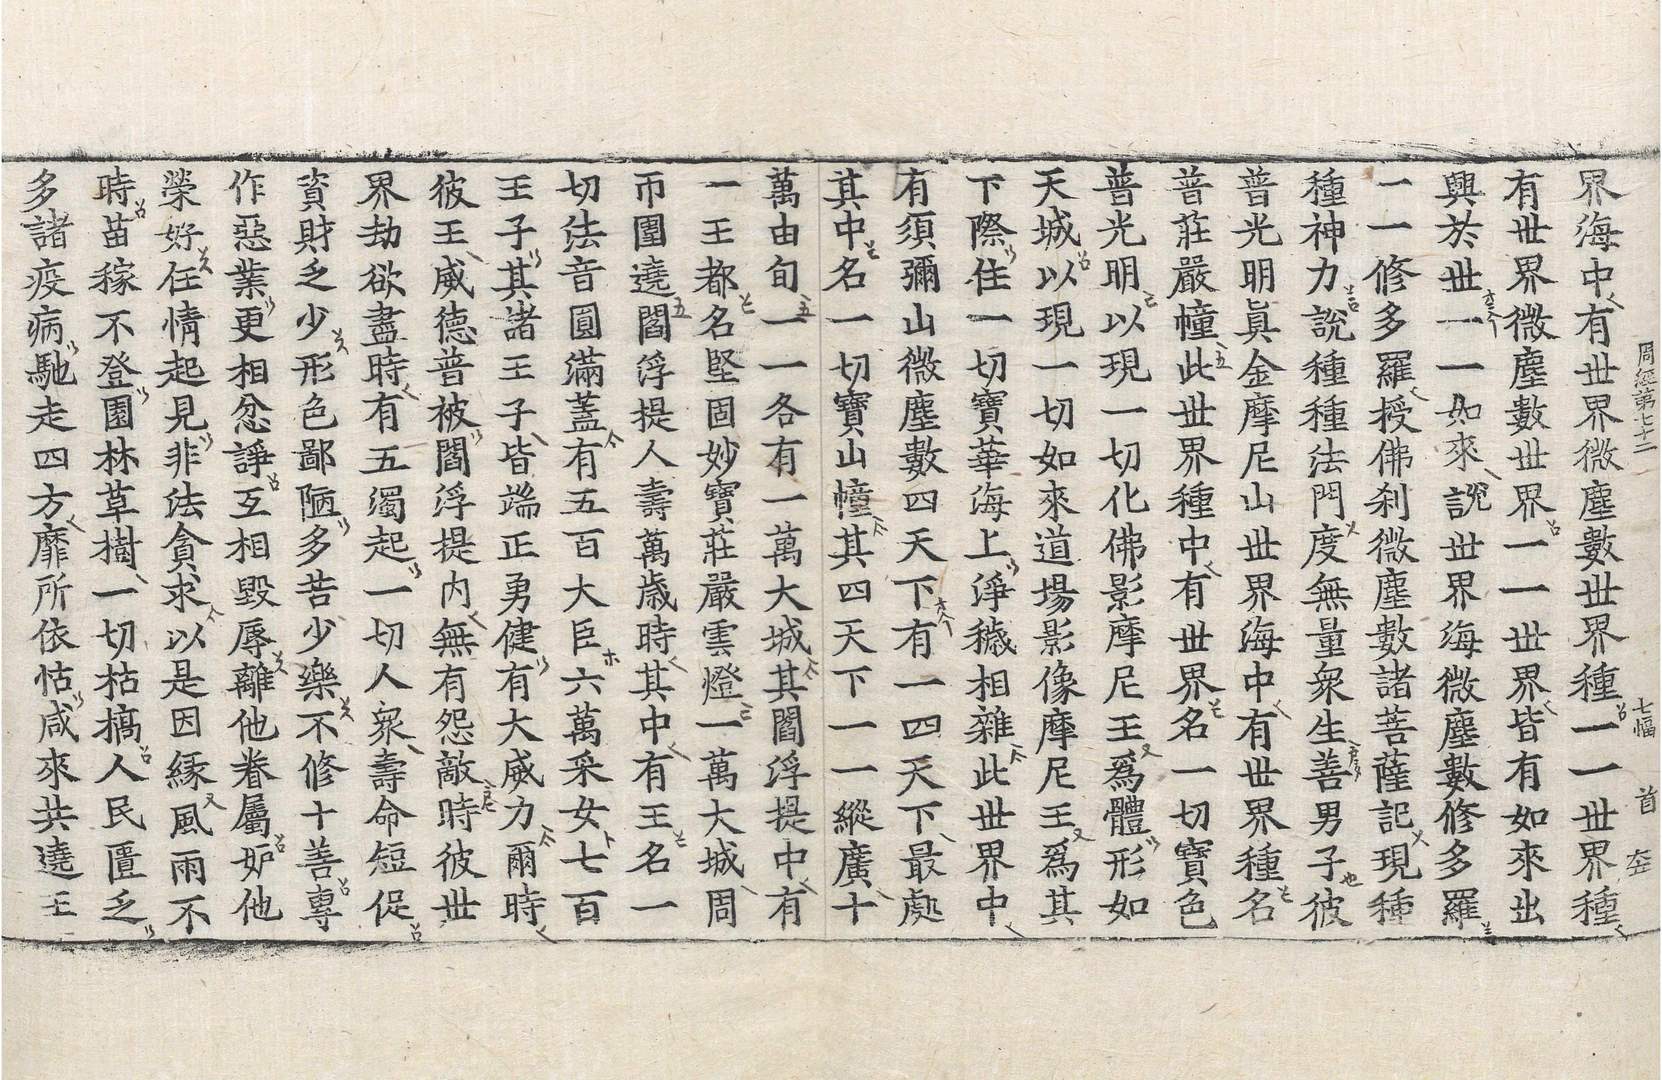 周經第七十二 七幅 首
界海中有世界微塵數世界種一一世界種
有世界微塵數世界一一世界皆有如來出
興於世一一如來說世界海微塵數修多羅
一一修多羅授佛刹微塵數諸菩薩記現種
種神力說種種法門度無量衆生善男子彼
普光明眞金摩尼山世界海中有世界種名
普莊嚴幢此世界種中有世界名一切寶色
普光明以現一切化佛影摩尼王爲體形如
天城以現一切如來道場影像摩尼王爲其
下際住一切寶華海上淨穢相雜此世界中
有須彌山微塵數四天下有一四天下最處
其中名一切寶山幢其四天下一一縱廣十
萬由旬一一各有一萬大城其閻浮提中有
一王都名堅固妙寶莊嚴雲燈一萬大城周
帀圍遶閻浮提人壽萬歲時其中有王名一
切法音圓滿蓋有五百大臣六萬采女七百
王子其諸王子皆端正勇健有大威力爾時
彼王威德普被閻浮提内無有怨敵時彼世
界劫欲盡時有五濁起一切人衆壽命短促
資財乏少形色鄙陋多苦少樂不修十善專
作惡業更相忿諍互相毀辱離他眷屬妒他
榮好任情起見非法貪求以是因緣風雨不
時苗稼不登園林草樹一切枯槁人民匱乏
多諸疫病馳走四方靡所依怙咸來共遶王